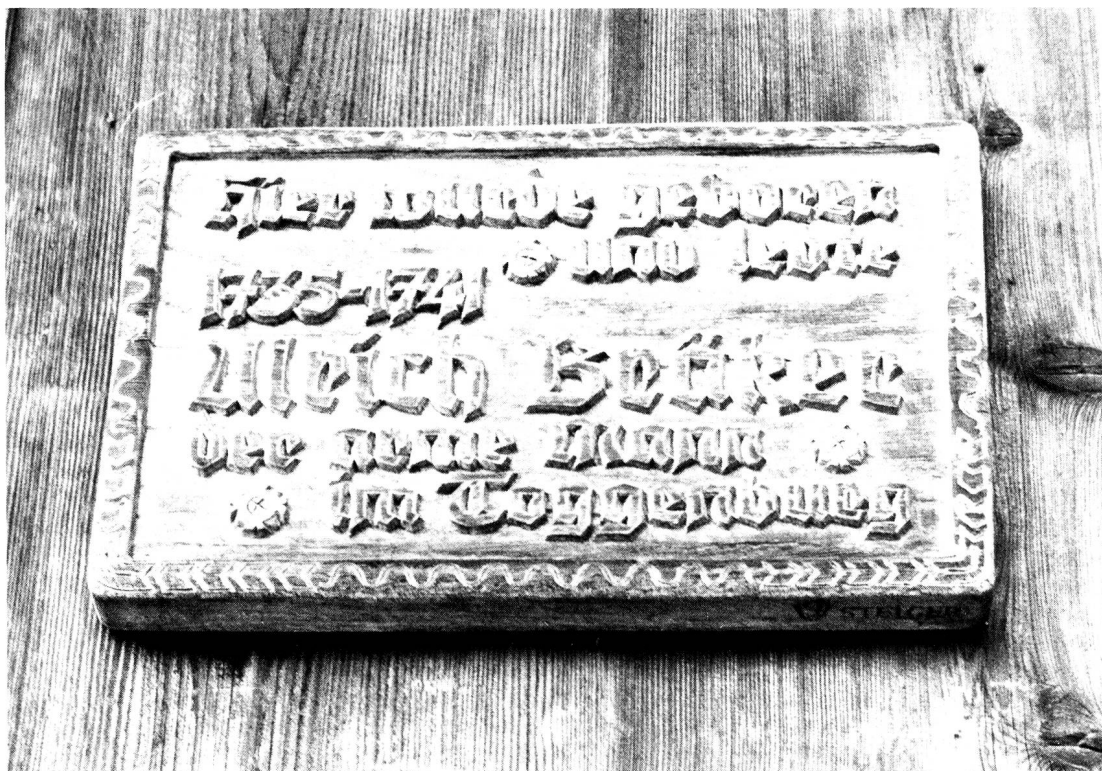 Hier wurde geboren
und lebte
1735-1741
Ulrich Bräker
der arme Mann
im Toggenburg
STEIGER